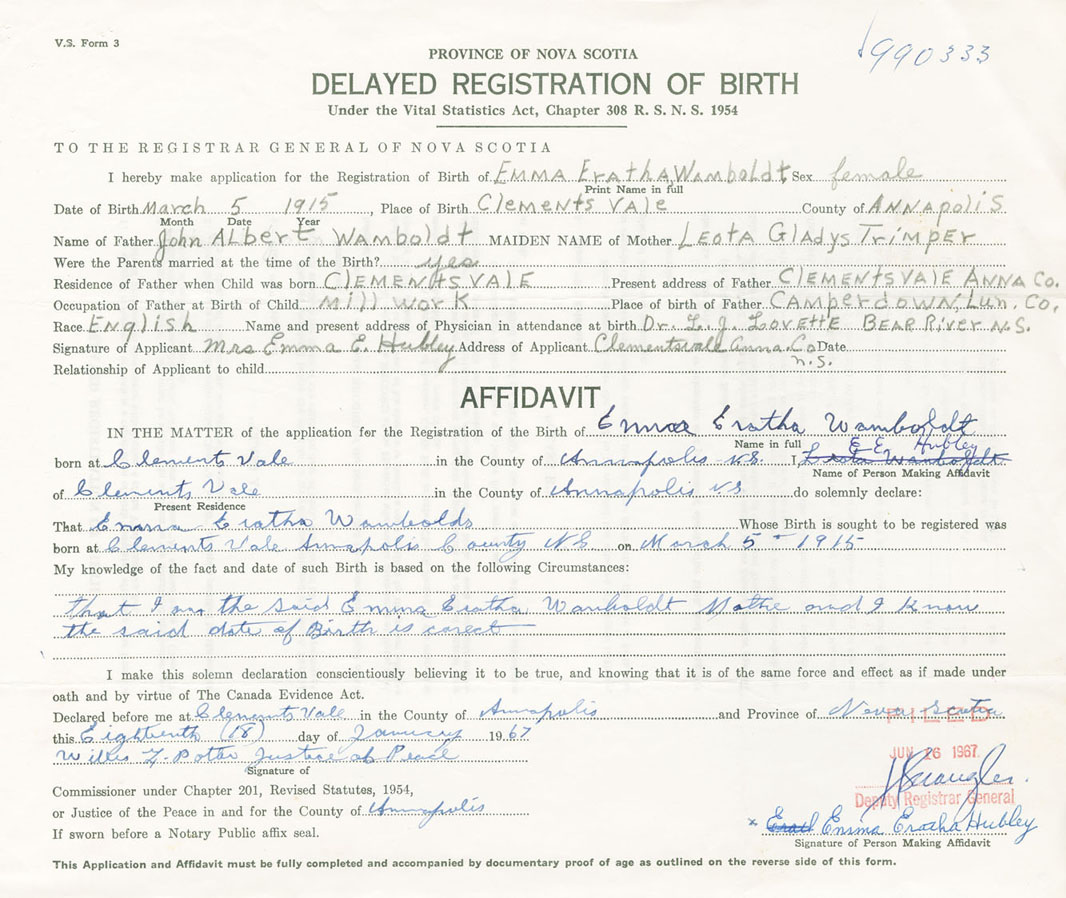 V.S. Form 3
990333
PROVINCE OF NOVA SCOTIA
DELAYED REGISTRATION OF BIRTH
Under the Vital Statistics Act, Chapter 308 R. S. N. S. 1954
TO THE REGISTRAR GENERAL OF NOVA SCOTIA
I hereby make application for the Registration of Birth of EMMA EratHA Wamboldt Sex female
Print Name in full
Date of Birth March 5 1915, Place of Birth Clements Vale County of ANNAPOLIS
Month Date Year
Name of Father John ALBert WAMBOLDT MAIDEN NAME of Mother LEOTA GLADYS TRIMPER
Were the Parents married at the time of the Birth? yes
Residence of Father when Child was born CLEMENTSVALE Present address of Father CLEMENTSVALE ANNA Co.
Occupation of Father at Birth of Child mill work Place of birth of Father CAMPERDOWN, Lun. Co.
Race English Name and present address of Physician in attendance at birth Dr. L. J. LOVETTE BEAR RIVER N.S.
Signature of Applicant Mrs Emma E. Hubley Address of Applicant Clementsvale Anna. Co Date
n.s.
Relationship of Applicant to child
AFFIDAVIT
IN THE MATTER of the application for the Registration of the Birth of Emma Eratha Wamboldt
Name in full E E Hubley
born at Clements Vale in the County of Annapolis N.S. I,
Name of Person Making Affidavit
of Clements Vale in the County of Annapolis N.S. do solemnly declare:
Present Residence
That Emma Eratha Wambolds Whose Birth is sought to be registered was
born at Clements Vale Annapolis County N.S on March 5 - 1915
My knowledge of the fact and date of such Birth is based on the following Circumstances:
that I am the said Emma Eratha Wamboldt Mothe and I know
the said date of Birth is corect
I make this solemn declaration conscientiously believing it to be true, and knowing that it is of the same force and effect as if made under
oath and by virtue of The Canada Evidence Act.
Declared before me at Clements Vale in the County of Annapolis and Province of Nova Scotia
FILED
this Eighteenth (18) day of January 1967
JUN 26 1967
Willis Potter Justice of Peace
Signature of
Commissioner under Chapter 201, Revised Statutes, 1954,
Deputy Registrar General
or Justice of the Peace in and for the County of Annapolis
x Emma Eratha Hubley
If sworn before a Notary Public affix seal.
Signature of Person Making Affidavit
This Application and Affidavit must be fully completed and accompanied by documentary proof of age as outlined on the reverse side of this form.